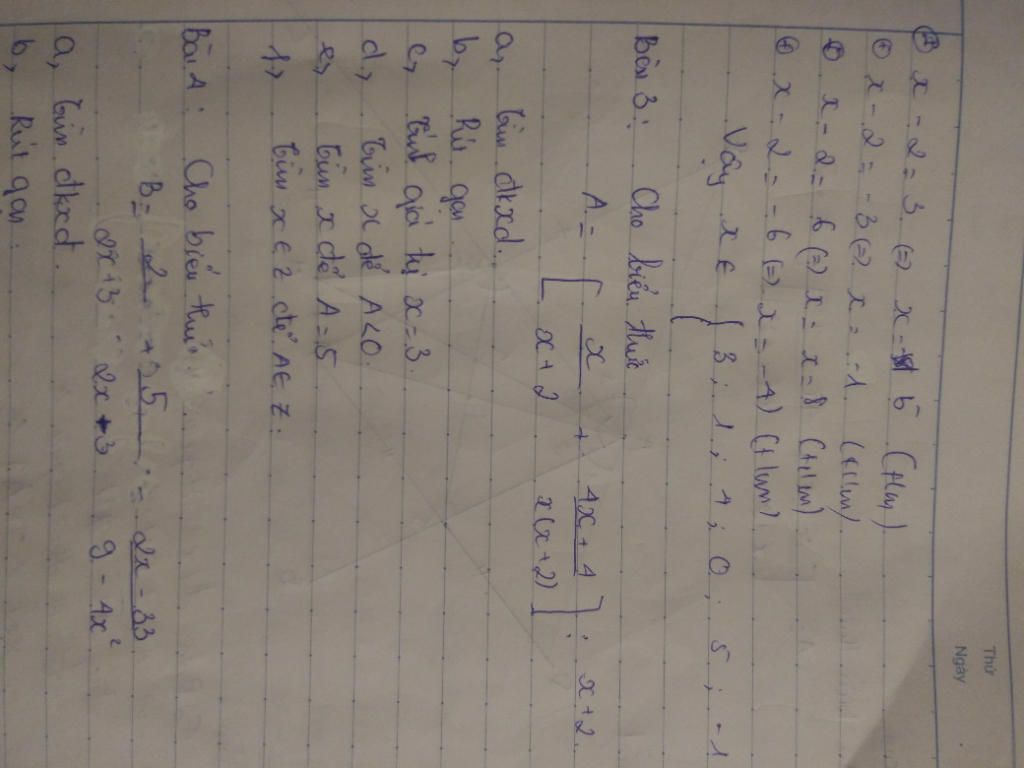 Thứ
Ngày
⊕ x - 2 = 3 (=) x = 5 (t/m)
⊕ x - 2 = -3 (=) x = -1 (t/m)
⊕ x - 2 = 6 (=) x = x = 8 (t/m)
⊕ x - 2 = -6 (=) x = -4) (t/m)
Vậy x ∈ { 3 ; 1 ; 4 ; 0 ; 5 ; -1
Bài 3: Cho biểu thức
A = [ x/(x + 2) + (4x + 4)/(x(x + 2)) ] : x + 2
a, Tìm đkxđ.
b, Rút gọn.
c, Tính giá trị x = 3.
d, Tìm x để A < 0
e, Tìm x để A = 5
f, Tìm x ∈ Z để A ∈ Z.
Bài 4: Cho biểu thức.
B = 2/(2x + 3) + 5/(2x + 3) - (2x - 33)/(9 - 4x²)
a, Tìm đkxđ.
b, Rút gọn.